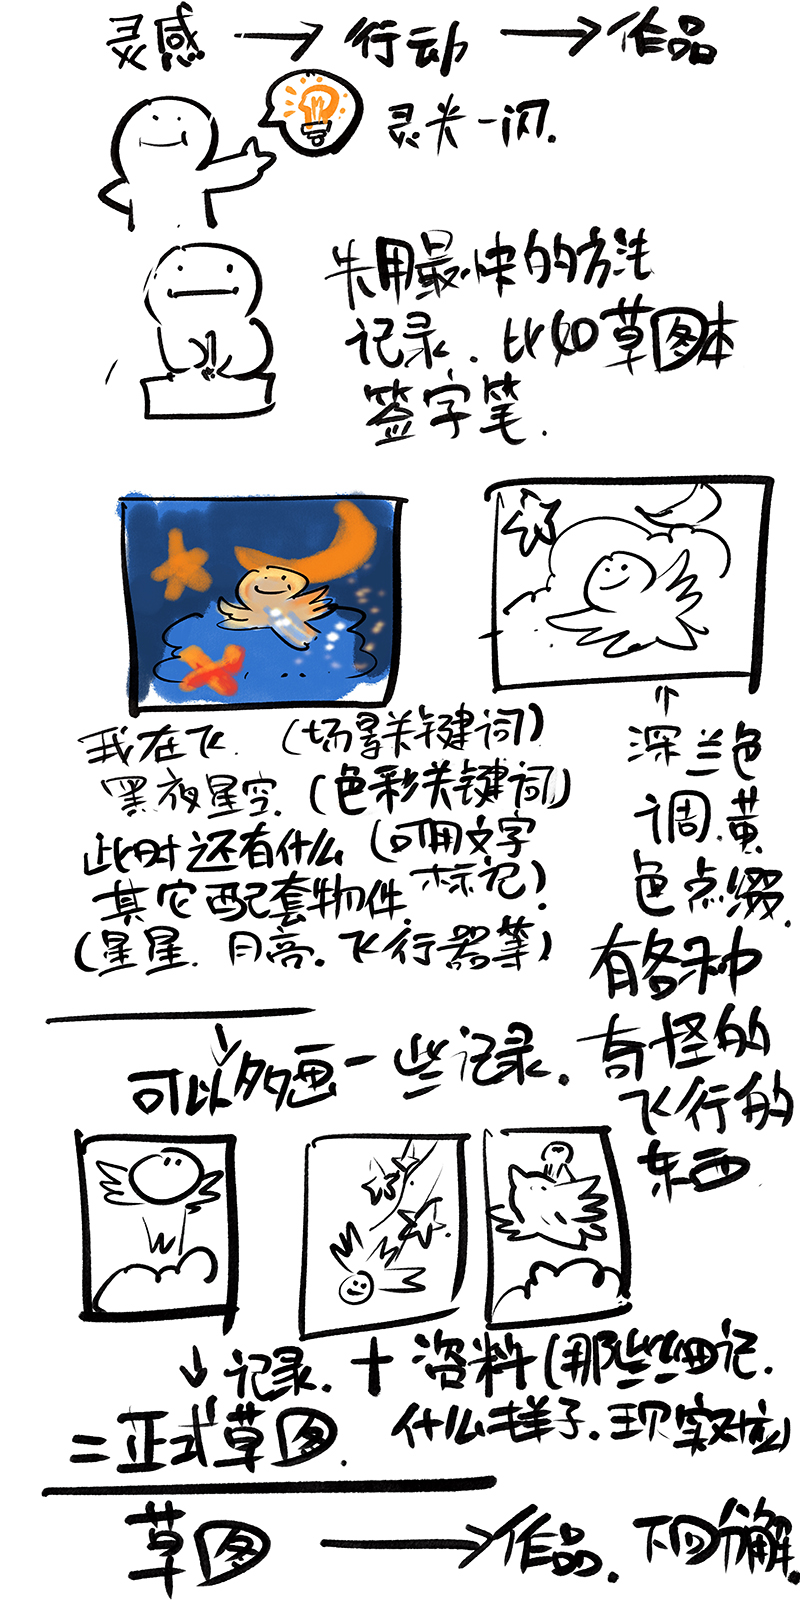 灵感 → 行动 → 作品
灵光一闪.
先用最快的方法
记录.比如草图本
签字笔.
我在飞.(场景关键词)
黑夜星空.(色彩关键词)
此时还有什么(可用文字
其它配套物件.标记)
(星星.月亮.飞行器等)
深兰色
调.黄
色点缀.
有各种
奇怪的
飞行的
东西
可以多画一些记录.
↓记录.+资料(那些细记.
=正式草图.什么样子.现实对应)
草图 → 作品.下回分解.